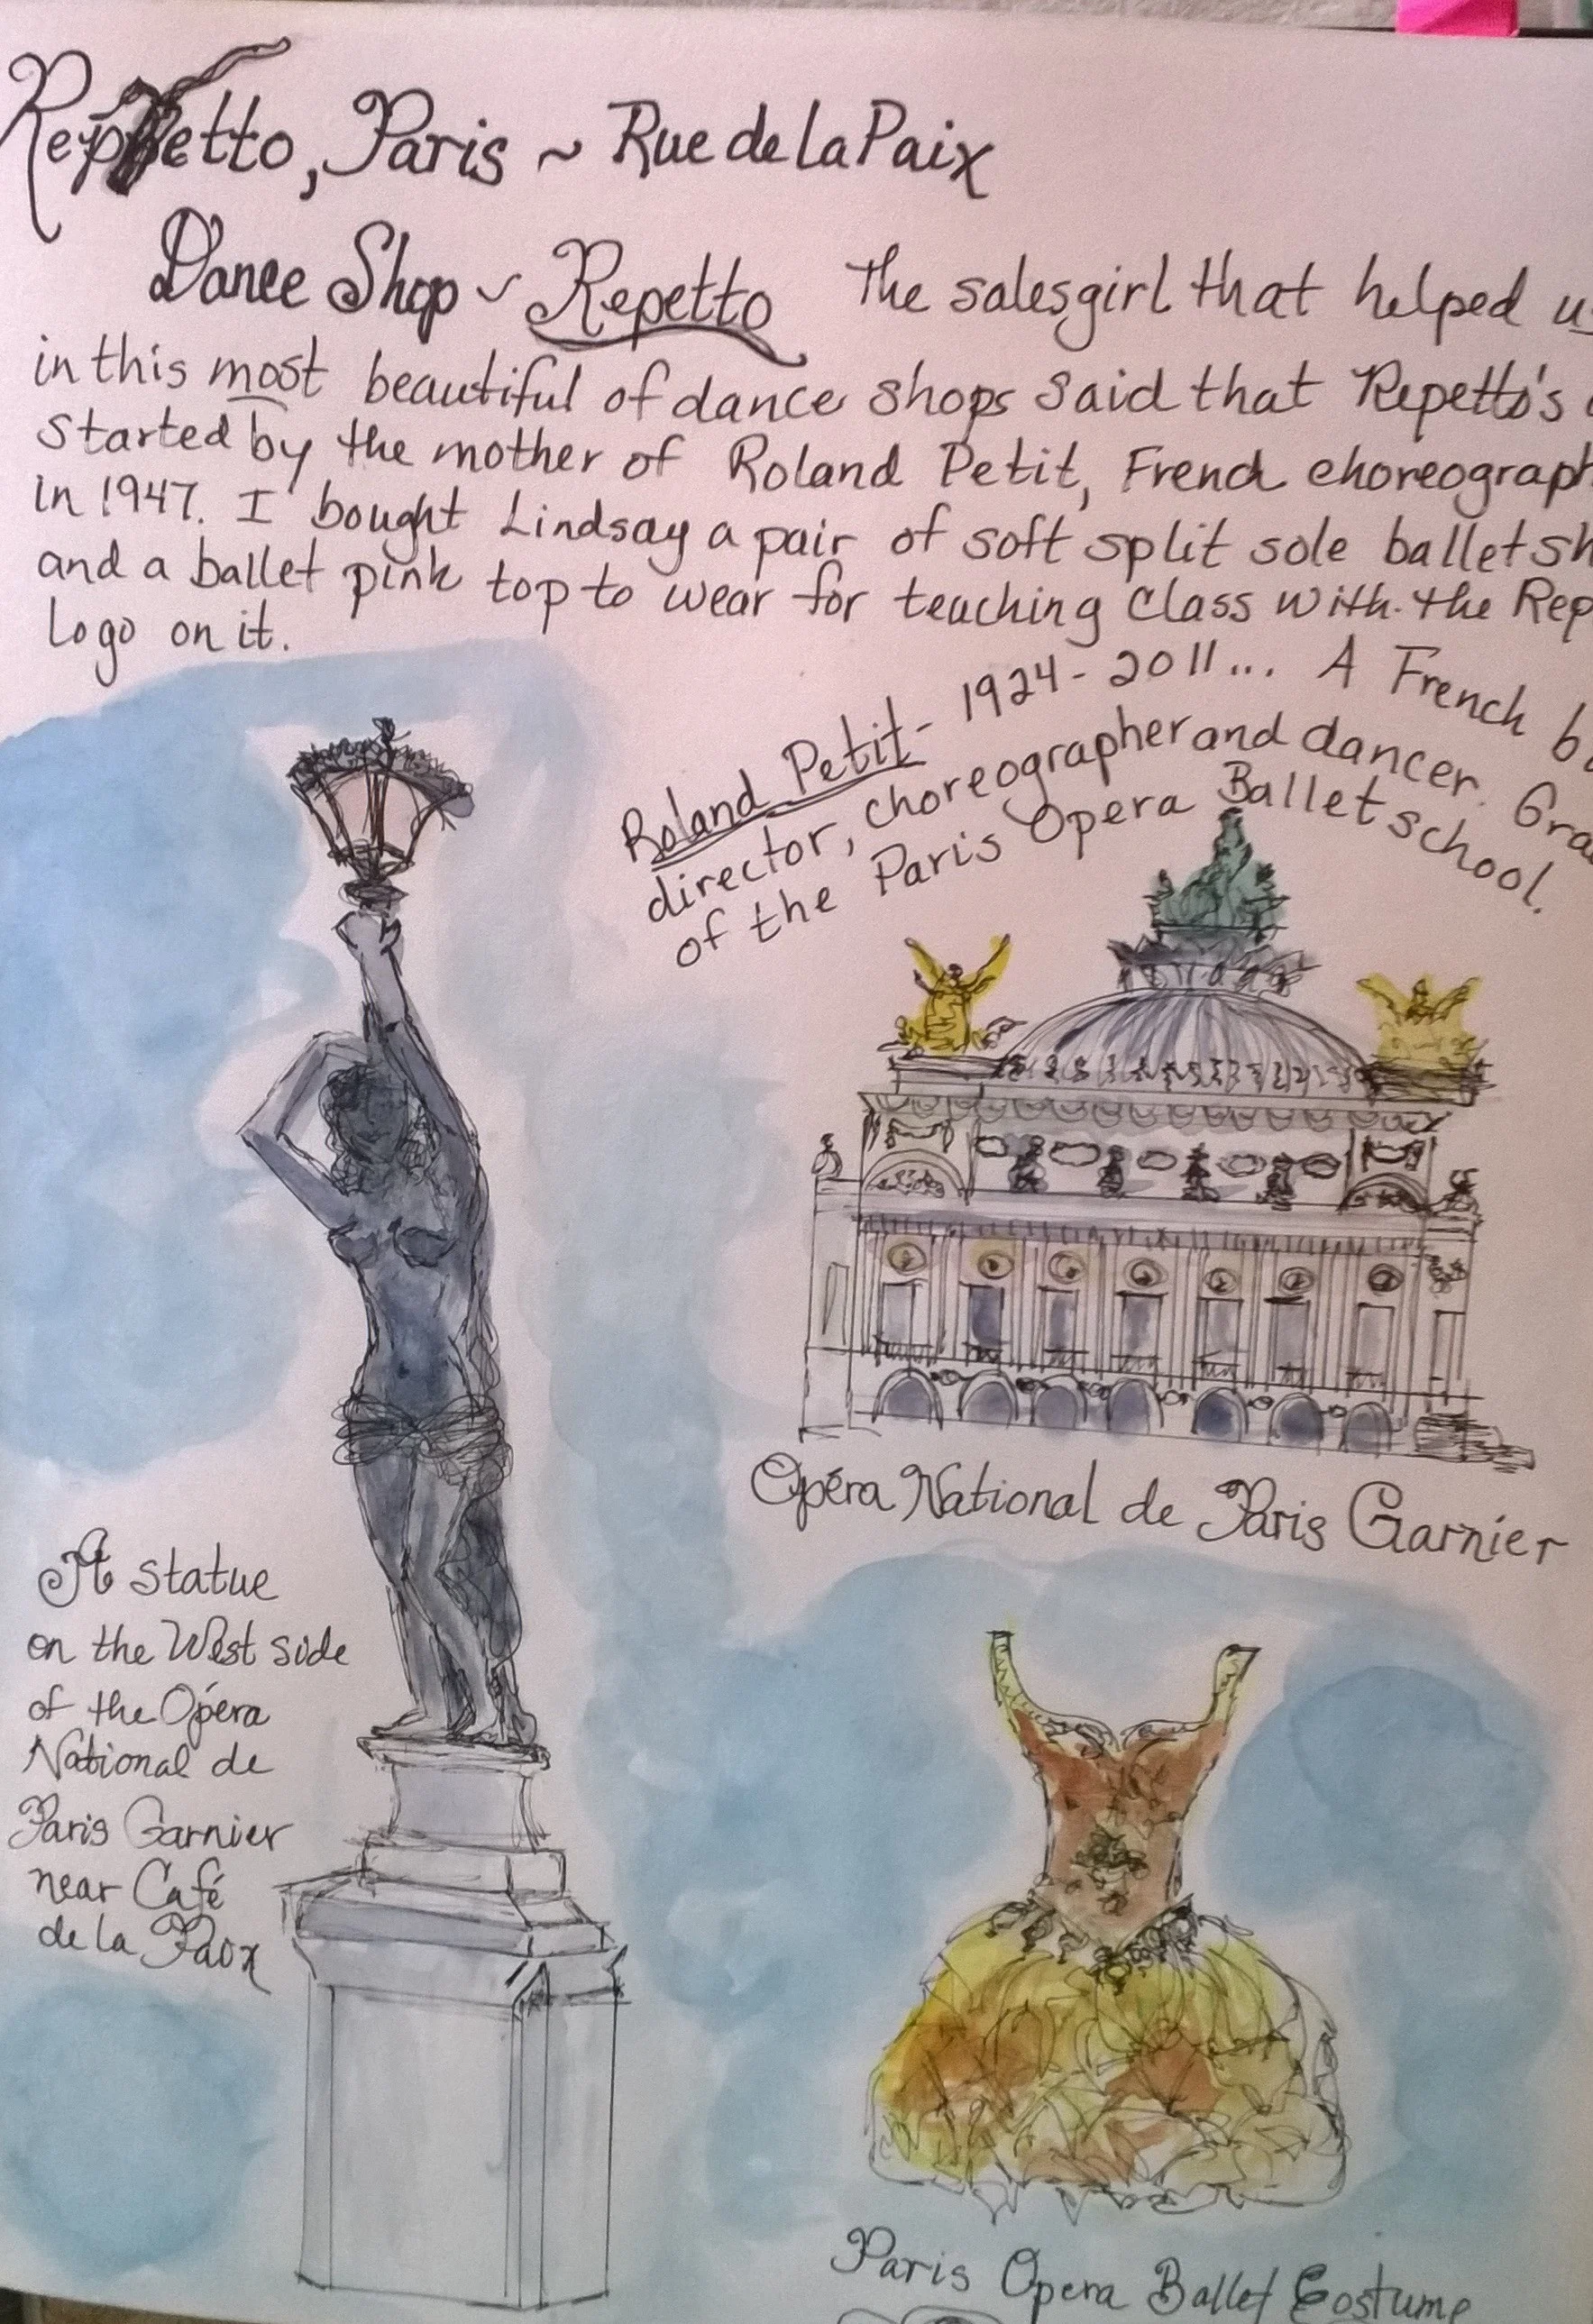 Reppetto, Paris ~ Rue de la Paix
Dance Shop ~ Repetto The salesgirl that helped us
in this most beautiful of dance shops said that Repetto's
started by the mother of Roland Petit, French choreograph
in 1947. I bought Lindsay a pair of soft split sole ballet sh
and a ballet pink top to wear for teaching class with the Rep
logo on it.
Roland Petit - 1924 - 2011... A French b
director, choreographer and dancer. Gra
of the Paris Opera Ballet school.
Opéra National de Paris Garnier
A statue
on the West side
of the Opéra
National de
Paris Garnier
near Café
de la Paix
Paris Opera Ballet Costume